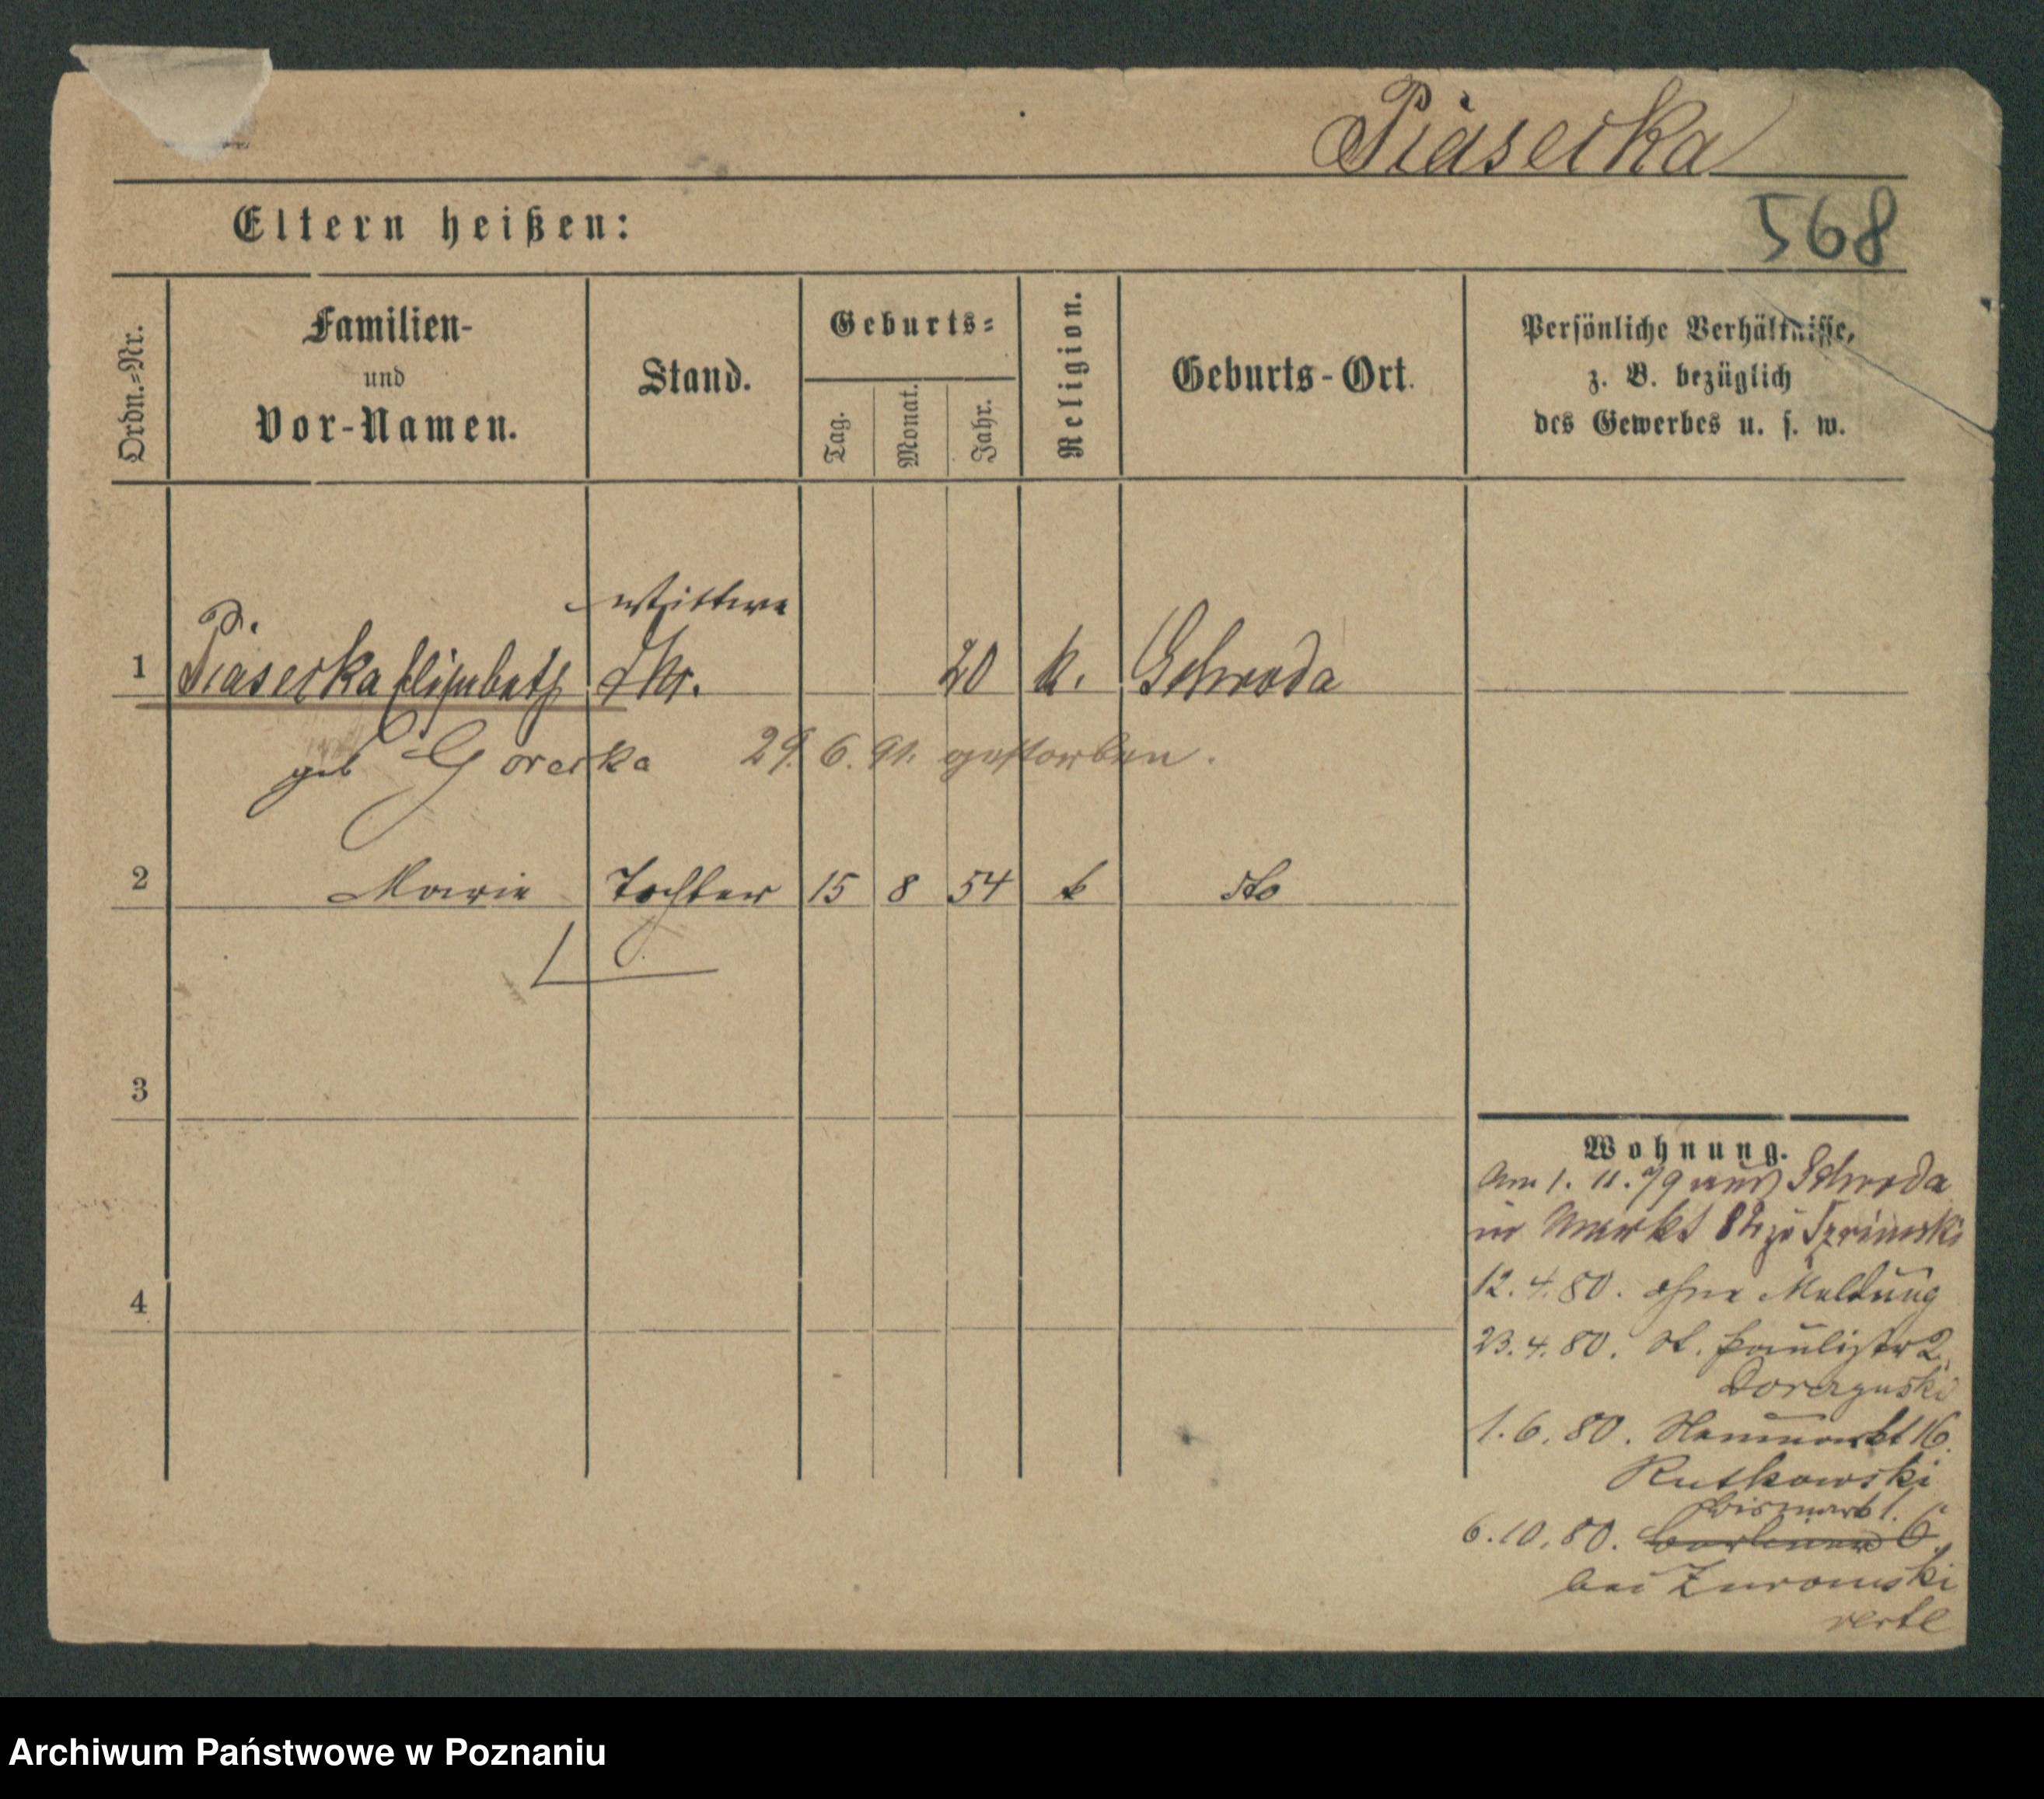 Piasecka
Eltern heißen:
568
Ordn.=Nr.
Familien-
und
Vor-Namen.
Stand.
Geburts=
Tag.
Monat.
Jahr.
Religion.
Geburts-Ort.
Persönliche Verhältnisse,
z. B. bezüglich
des Gewerbes u. s. w.
Wittwe
1 Piasecka Elisabeth 20 k. Schroda
geb Gorecka 29. 6. 91. gestorben.
2 Marie Tochter 15 8 54 k dto
3
4
Wohnung.
Am 1. 11. 79 aus Schroda
Markt 82
12. 4. 80. ohne Meldung
23. 4. 80. St. Paulistr 2.
1. 6. 80. 16.
Rutkowski
Bismark 1.
6. 10. 80. Berliner 6.
bei Zuromski
verte
Archiwum Państwowe w Poznaniu